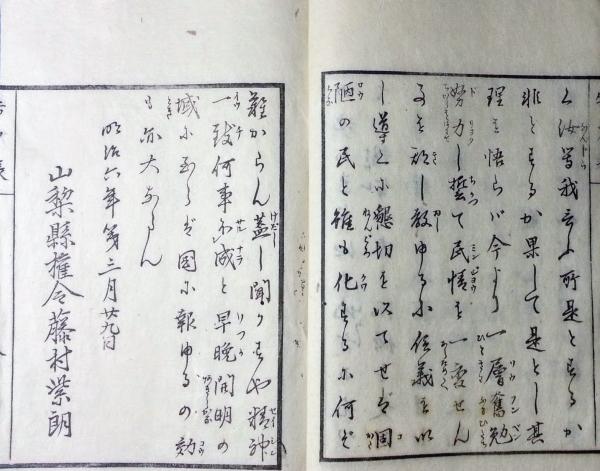 く汝等我言ふ所是とするか
非とするか果して是とし其
理を悟らバ今より一層奮勉
努力し誓て民情を一変せん
し教ゆるに信義を以
し導くに懇切を以てせバ固
陋の民と雖も化するに何ぞ
難からん蓋し聞かずや精神
一致何事か成と早晩開明の
域に至らバ国に報ゆるの効
も亦大ならん
明治六年第三月廿九日
山梨縣権令藤村紫朗